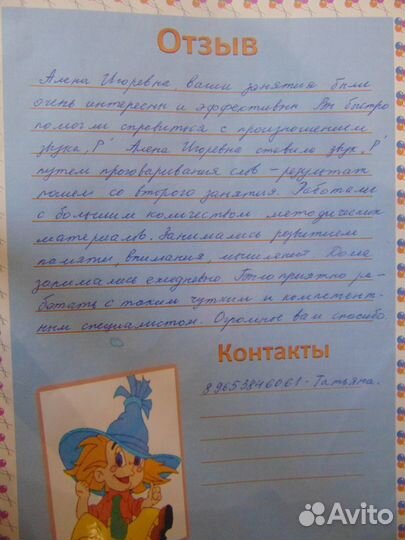 Отзыв
Алена Игоревна, ваши занятия были
очень интересны и эффективны Вы быстро
помогли справиться с произношением
звука „Р" Алена Игоревна ставила звук „Р"
путем проговаривания слов – результат
пошел со второго занятия. Работали
с большим количеством методических
материалов. Занимались развитием
памяти, внимания, мышления Дома
занимались ежедневно Было приятно ра-
ботать с таким чутким и компетент-
ным специалистом. Огромное вам спасибо.
Контакты
89653846061 - Татьяна.
Avito